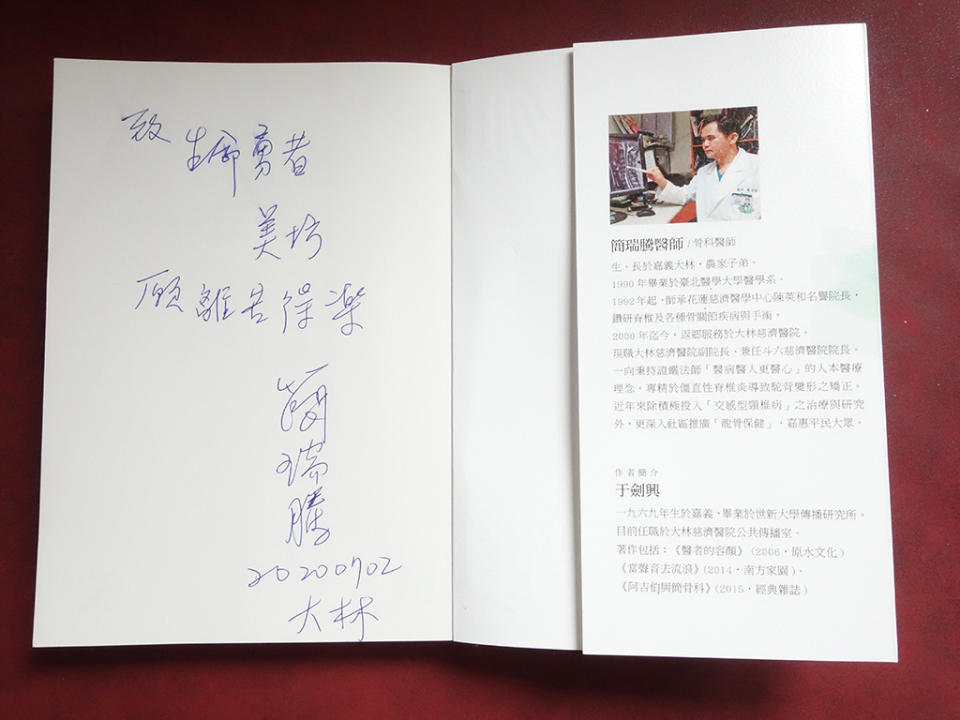 致
生命勇者
美坊
願離苦得樂
簡瑞騰
20200702
大林
簡瑞騰醫師/骨科醫師
生、長於嘉義大林,農家子弟。
1990年畢業於臺北醫學大學醫學系。
1992年起,師承花蓮慈濟醫學中心陳英和名譽院長,
鑽研脊椎及各種骨關節疾病與手術。
2000年迄今,返鄉服務於大林慈濟醫院。
現職大林慈濟醫院副院長、兼任斗六慈濟醫院院長。
一向秉持證嚴法師「醫病醫人更醫心」的人本醫療
理念,專精於僵直性脊椎炎導致駝背變形之矯正。
近年來除積極投入「交感型頸椎病」之治療與研究
外,更深入社區推廣「龍骨保健」,嘉惠平民大眾。
作者簡介
于劍興
一九六九年生於嘉義,畢業於世新大學傳播研究所。
目前任職於大林慈濟醫院公共傳播室。
著作包括:《醫者的容顏》(2006,原水文化)
《當聲音去流浪》(2014,南方家園)、
《阿古伯與簡骨科》(2015,經典雜誌)